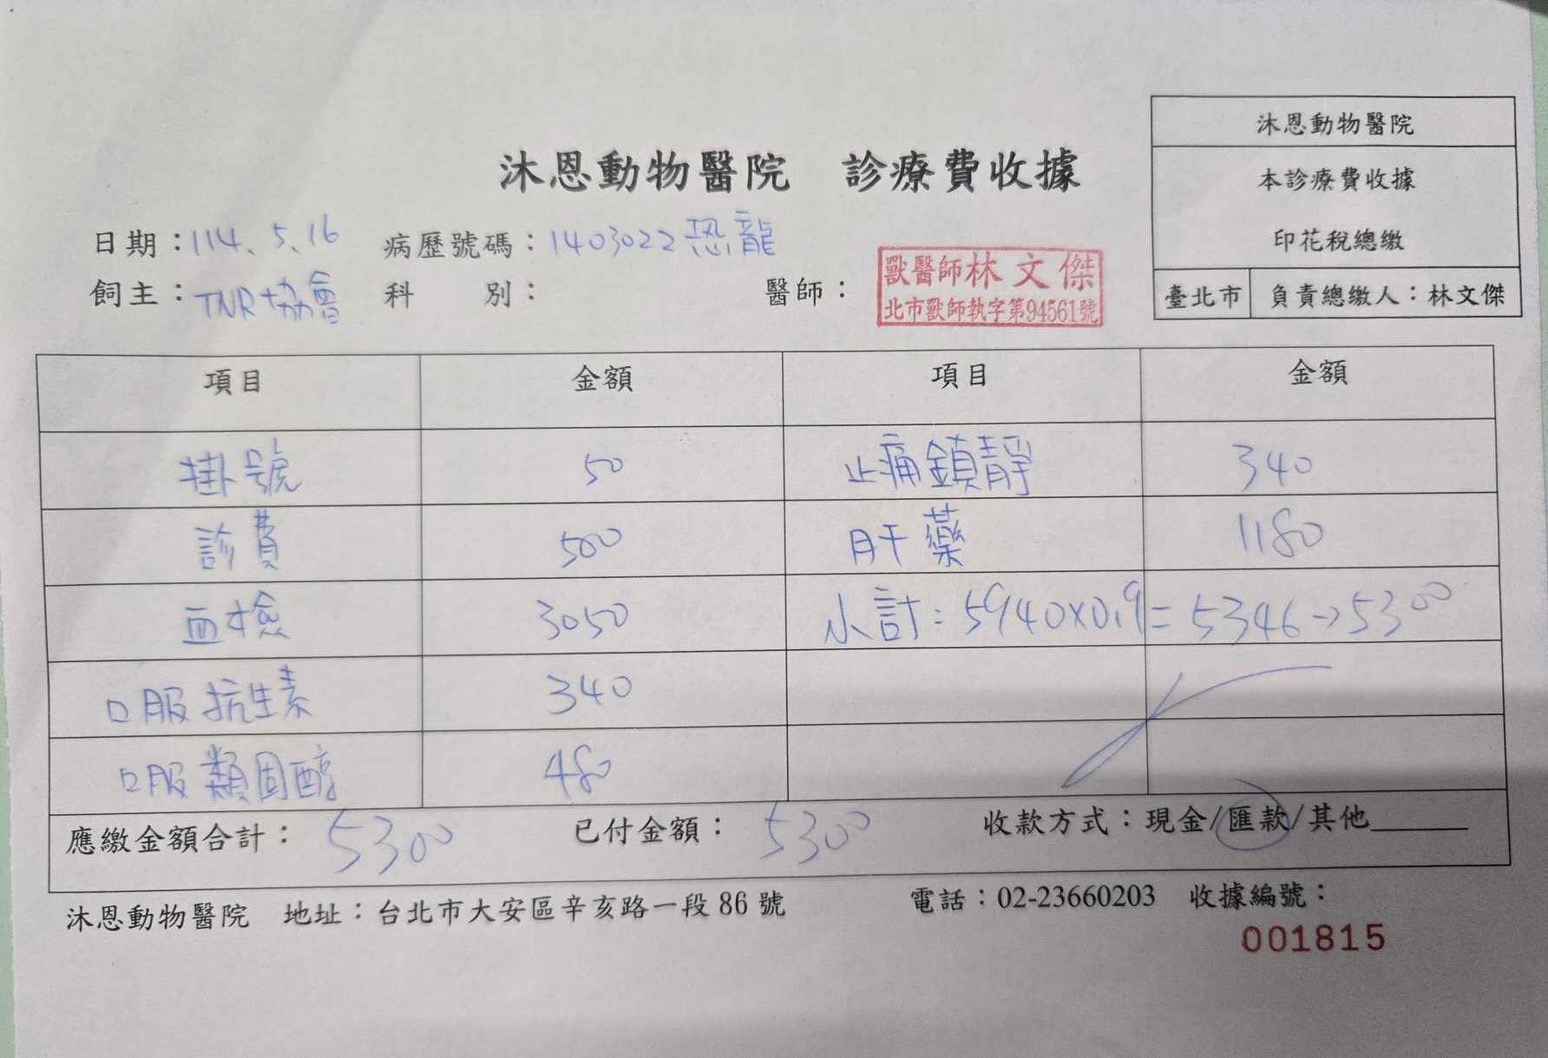 沐恩動物醫院
本診療費收據
印花稅總繳
臺北市 負責總繳人：林文傑
沐恩動物醫院 診療費收據
日期：114、5、16 病歷號碼：1403022 恐龍
飼主：TNR協會 科 別： 醫師：
獸醫師林文傑
北市獸師執字第94561號
項目 金額 項目 金額
掛號 50 止痛鎮靜 340
診費 500 肝藥 1180
血檢 3050 小計：5940x0.9=5346→5300
口服抗生素 340
口服類固醇 480
應繳金額合計：5300 已付金額：5300 收款方式：現金/匯款/其他______
沐恩動物醫院 地址：台北市大安區辛亥路一段 86 號 電話：02-23660203 收據編號：
001815